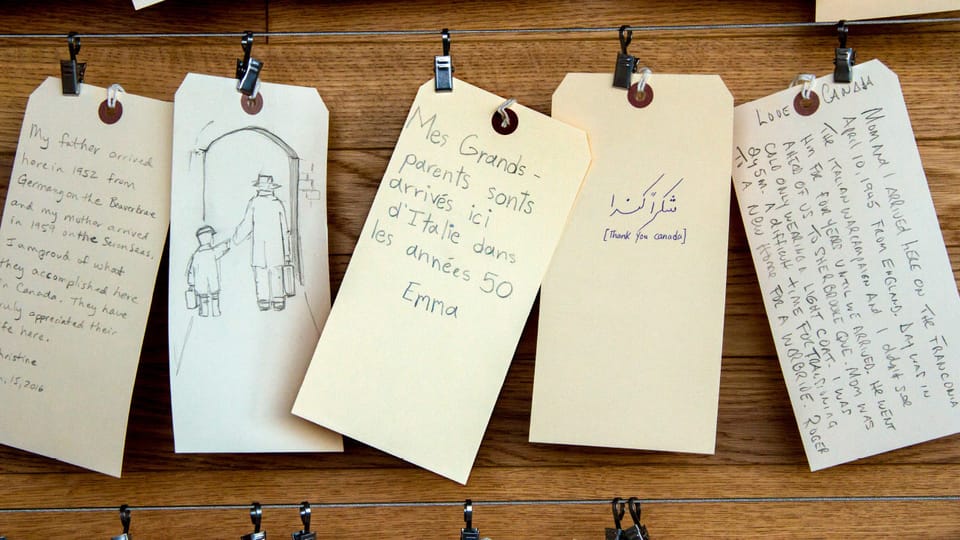 My father arrived
here in 1952 from
Germany on the Beaverbrae
and my mother arrived
in 1959 on the Seven Seas.
I am proud of what
they accomplished here
in Canada. They have
truly appreciated their
life here.
Christine
15, 2016
Mes Grands-
parents sonts
arrivés ici
d'Italie dans
les années 50
Emma
شكراً كندا
[Thank you canada]
LOVE CANADA
MOM AND I ARRIVED HERE ON THE FRANCONIA
APRIL 10, 1945 FROM ENGLAND. DAD WAS IN
THE ITALIAN WAR CAMPAIGN AND I DIDN'T SEE
HIM FOR FOUR YEARS UNTIL WE ARRIVED. HE WENT
AHEAD OF US TO SHERBROOKE QUE. MOM WAS
COLD ONLY WEARING A LIGHT COAT. I WAS
A DIFFICULT TIME
A NEW HOME FOR A WARBRIDE. ROGER